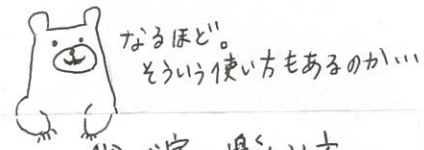 なるほど。
そういう使い方もあるのか…